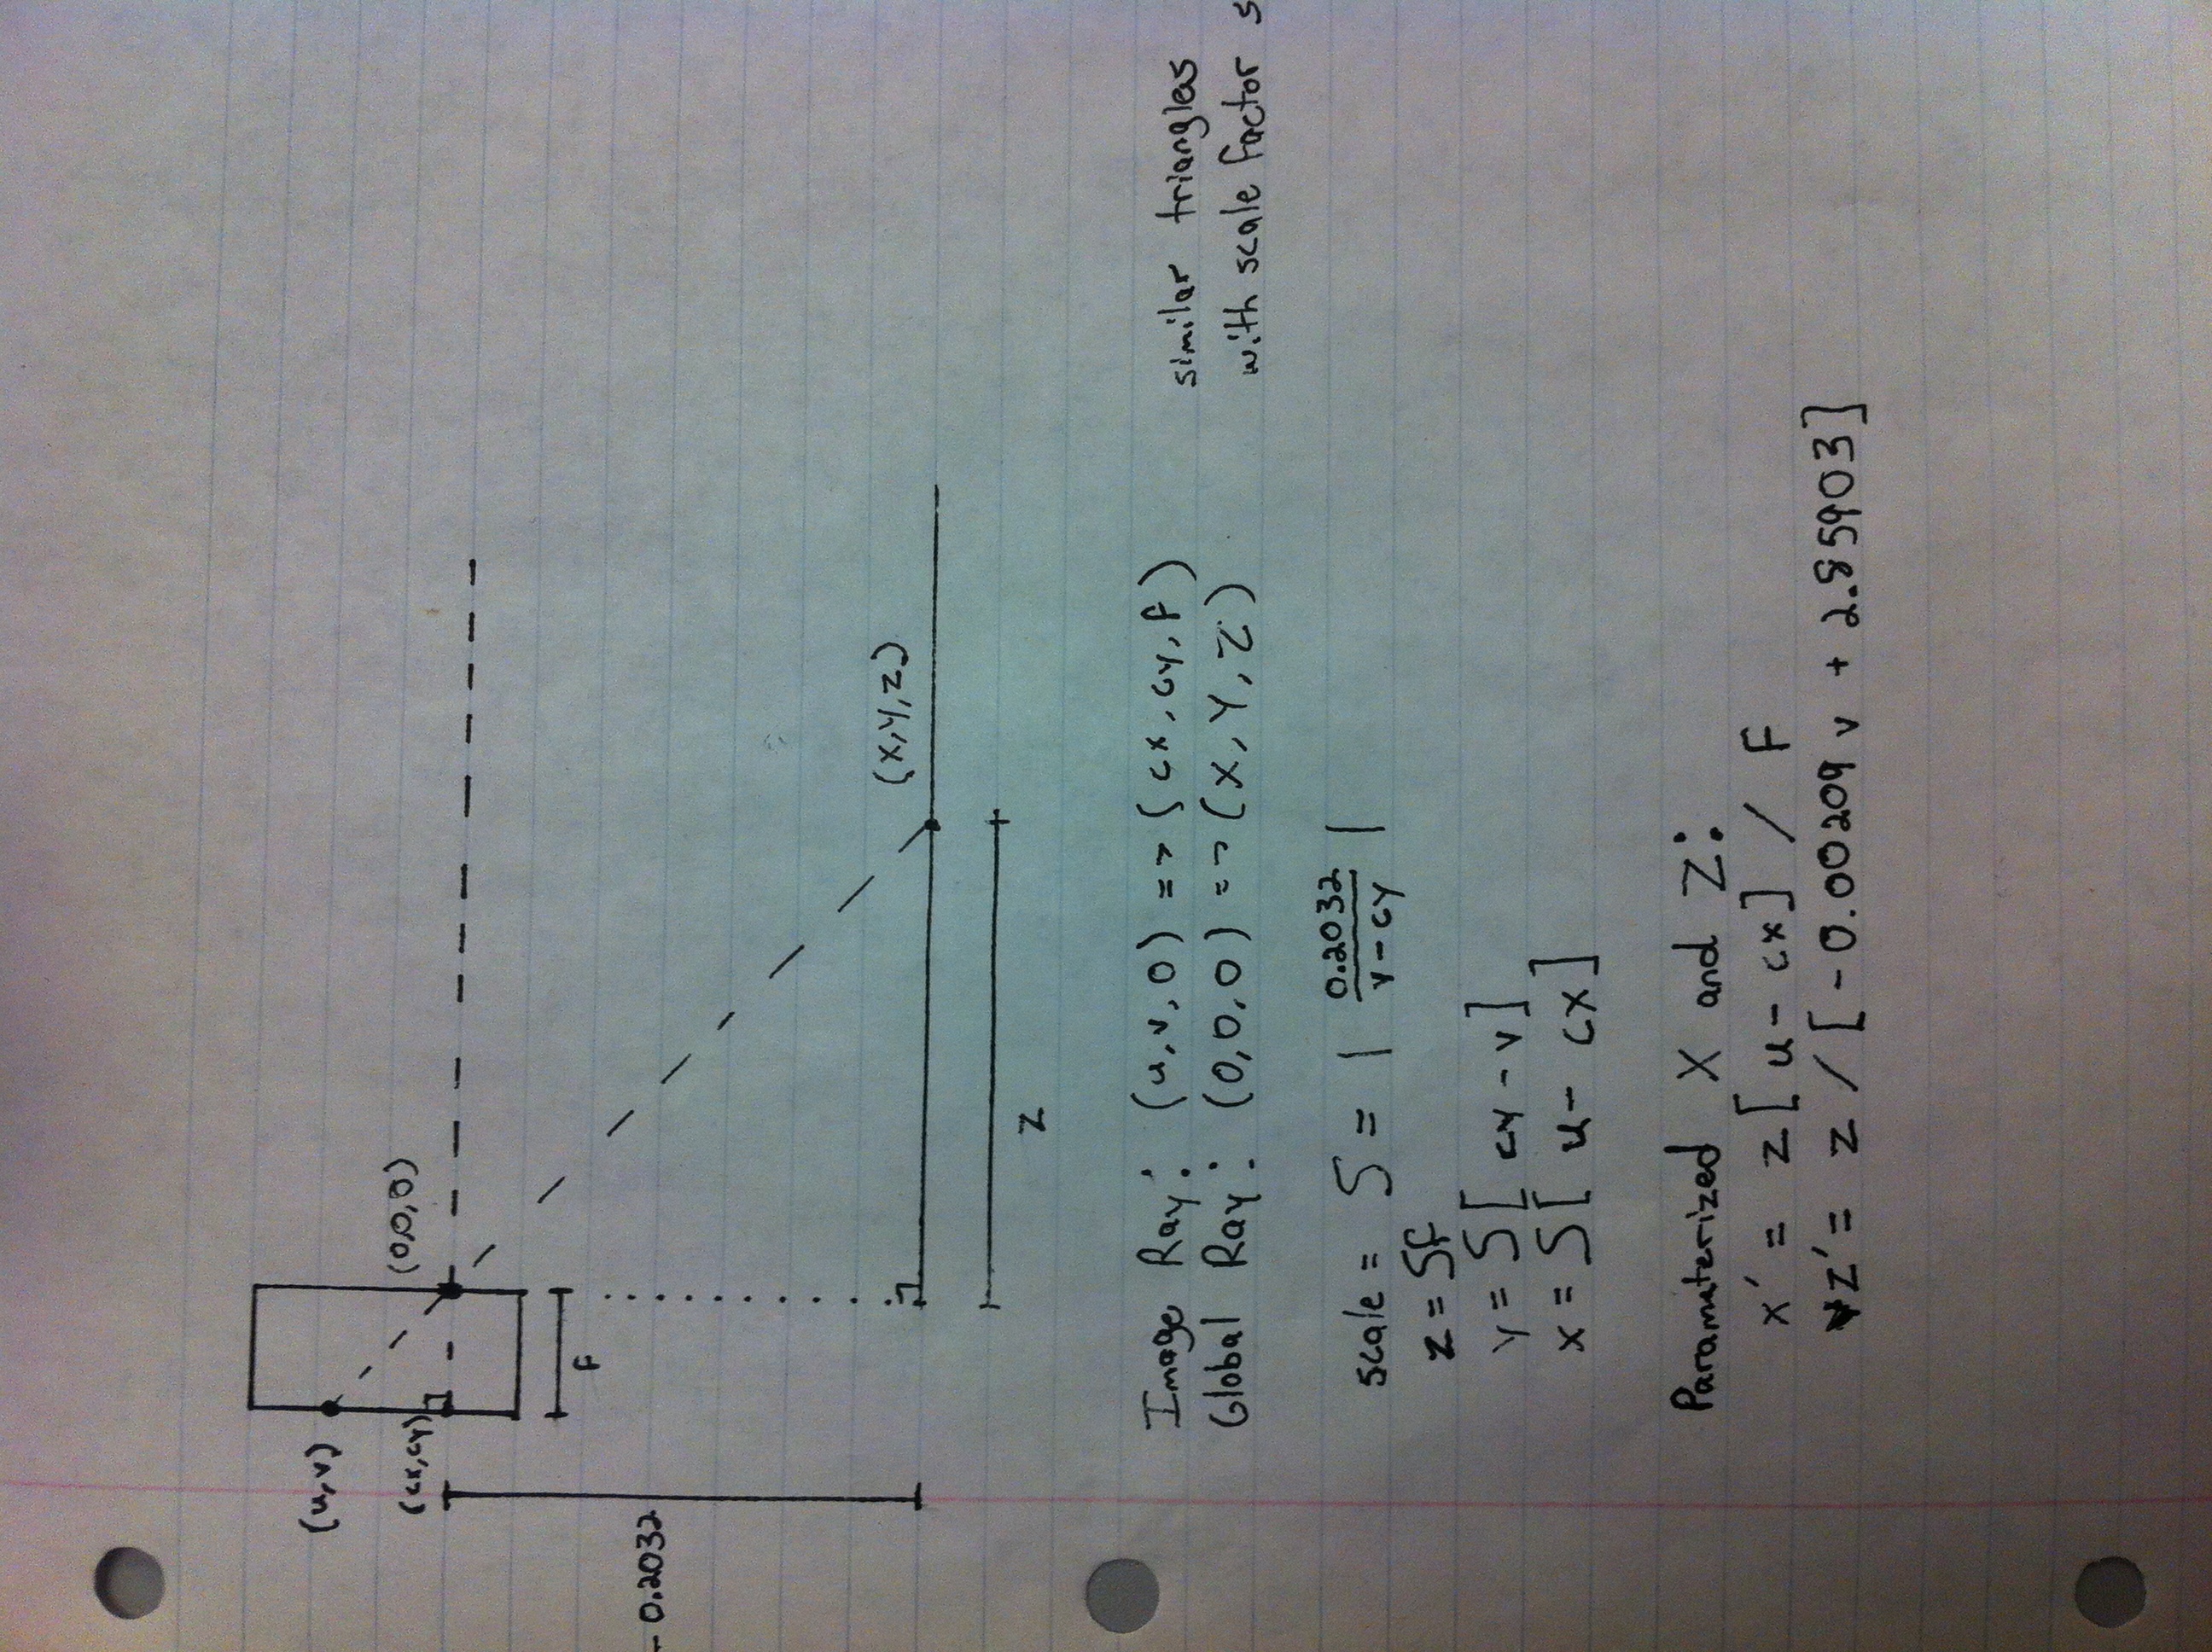 (u,v)
(cx,cy)
(0,0,0)
F
- 0.2032
(x,y,z)
z
Image Ray: (u,v,0) => (cx,cy,f)
Global Ray: (0,0,0) => (x,y,z)
similar triangles
with scale factor s
scale = S = | 0.2032 / v-cy |
z = Sf
y = S[ cy - v]
x = S[ u - cx]
Paramaterized X and Z:
x' = z[u - cx] / F
z' = z / [-0.00209 v + 2.85903]